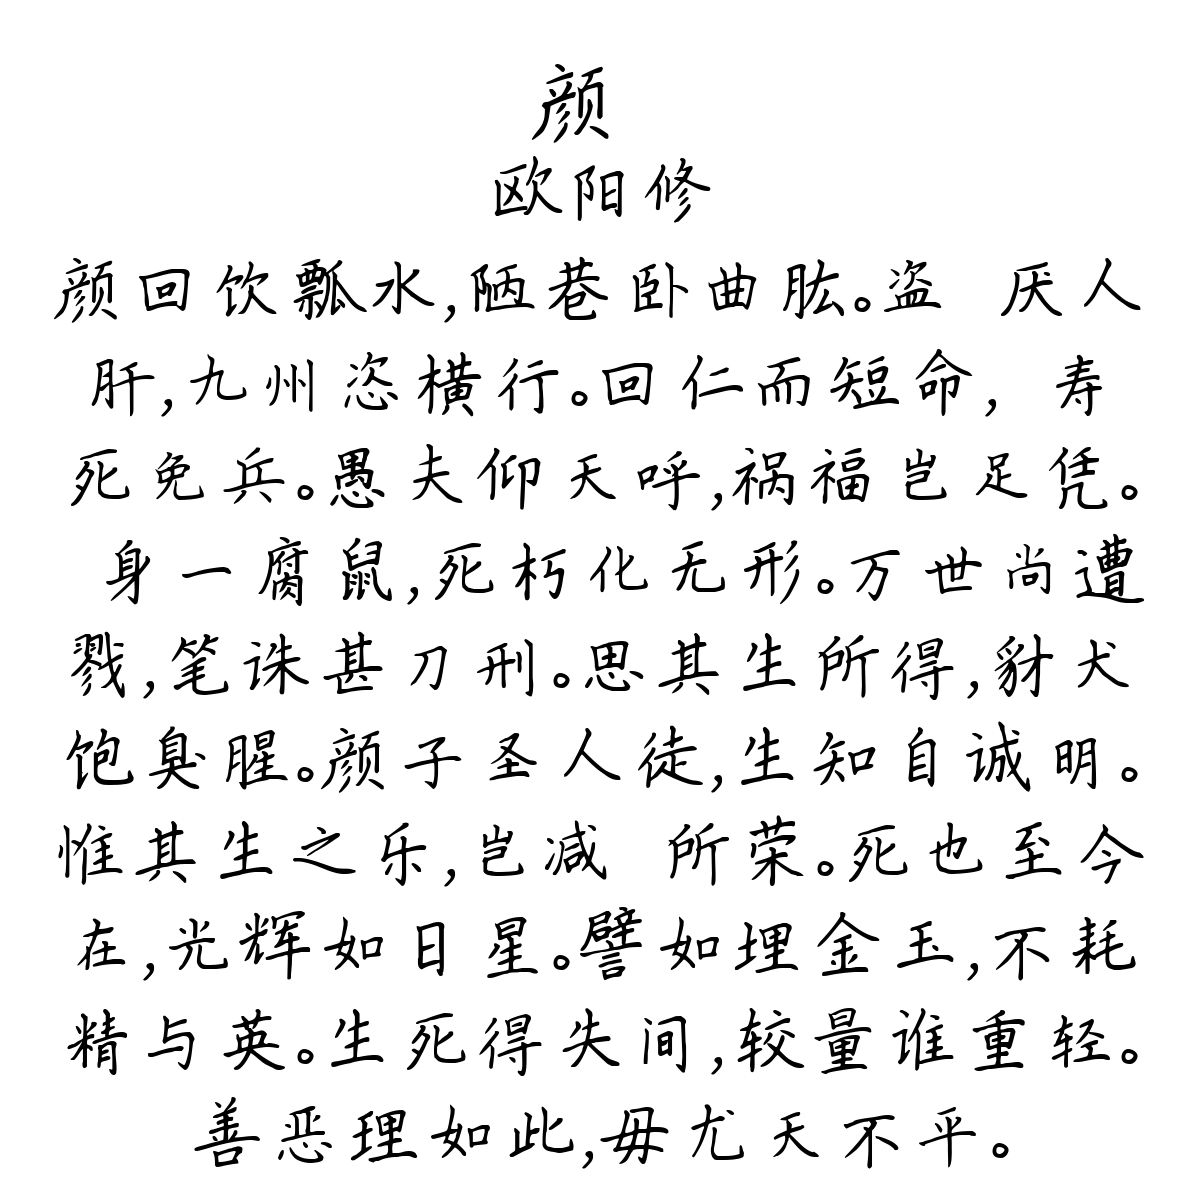 颜
欧阳修
颜回饮瓢水,陋巷卧曲肱。盗 厌人
肝,九州恣横行。回仁而短命, 寿
死免兵。愚夫仰天呼,祸福岂足凭。
身一腐鼠,死朽化无形。万世尚遭
戮,笔诛甚刀刑。思其生所得,豺犬
饱臭腥。颜子圣人徒,生知自诚明。
惟其生之乐,岂减 所荣。死也至今
在,光辉如日星。譬如埋金玉,不耗
精与英。生死得失间,较量谁重轻。
善恶理如此,毋尤天不平。